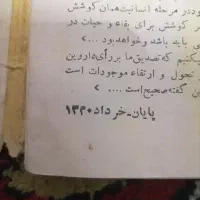 ودر مرحله انسانیت همان کوشش
ر کوشش برای بقاء و حیات در
ی باید باشد وخواهد بود ...>
یکنیم که تصدیق ما بر رأی داروین
تحول و ارتقاء موجودات است
ن گفته صحیح است .... >
پایان-خرداد ۱۳۲۰